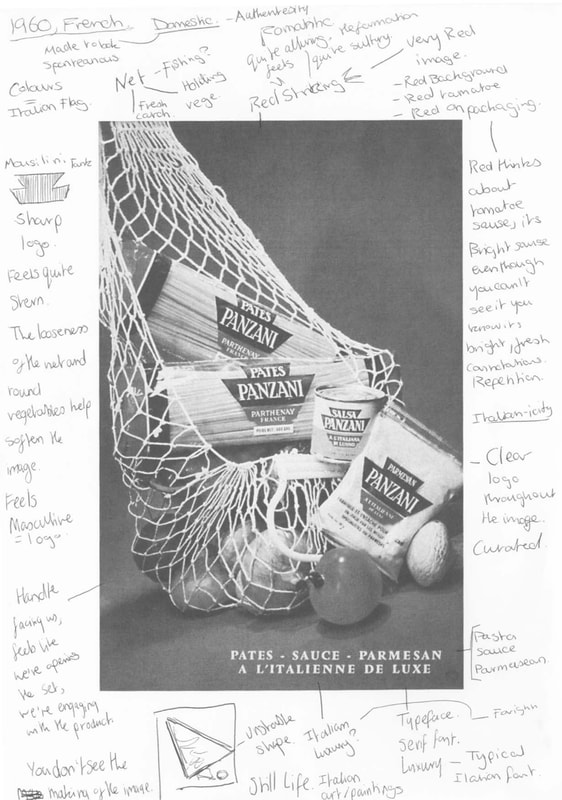 1960, French. Domestic. - Authenticity
Made to look
spontaneous
Colours
=
Italian Flag.
Net - Fishing?
Fresh
catch.
Holding
vege.
Romantic
Quite alluring.
feels
quite sultry
Red
Very Red
image.
- Red Background
- Red tomatoe
- Red on packaging.
Mousilini
Sharp
logo.
Feels quite
Stern.
The looseness
of the net and
round
vegetables help
soften the
image.
Feels
Masculine
= logo.
Handle
facing us,
feels like
we're opening
the
we're engaging
with the product
You don't see the
making of the image.
Red thinks
about
tomatoe
sause, its
Bright sause
even though
you can't
see it you
know its
bright, fresh
connotations.
Repetition.
Italian-icity
- Clear
logo
throughout
the image.
Curated.
PATES
PANZANI
PARTHENAY
FRANCE
PATES
PANZANI
PARTHENAY
FRANCE
SALSA
PANZANI
A L'ITALIANA
DI LUSSO
PARMESAN
PANZANI
A L'ITALIENNE
PATES - SAUCE - PARMESAN
A L'ITALIENNE DE LUXE
Pasta
sauce
Parmesean.
unstable
shape.
Still Life.
Italian
luxury?
Italian
art/paintings
Typeface.
Serif font.
Luxury - Typical
Italian font.